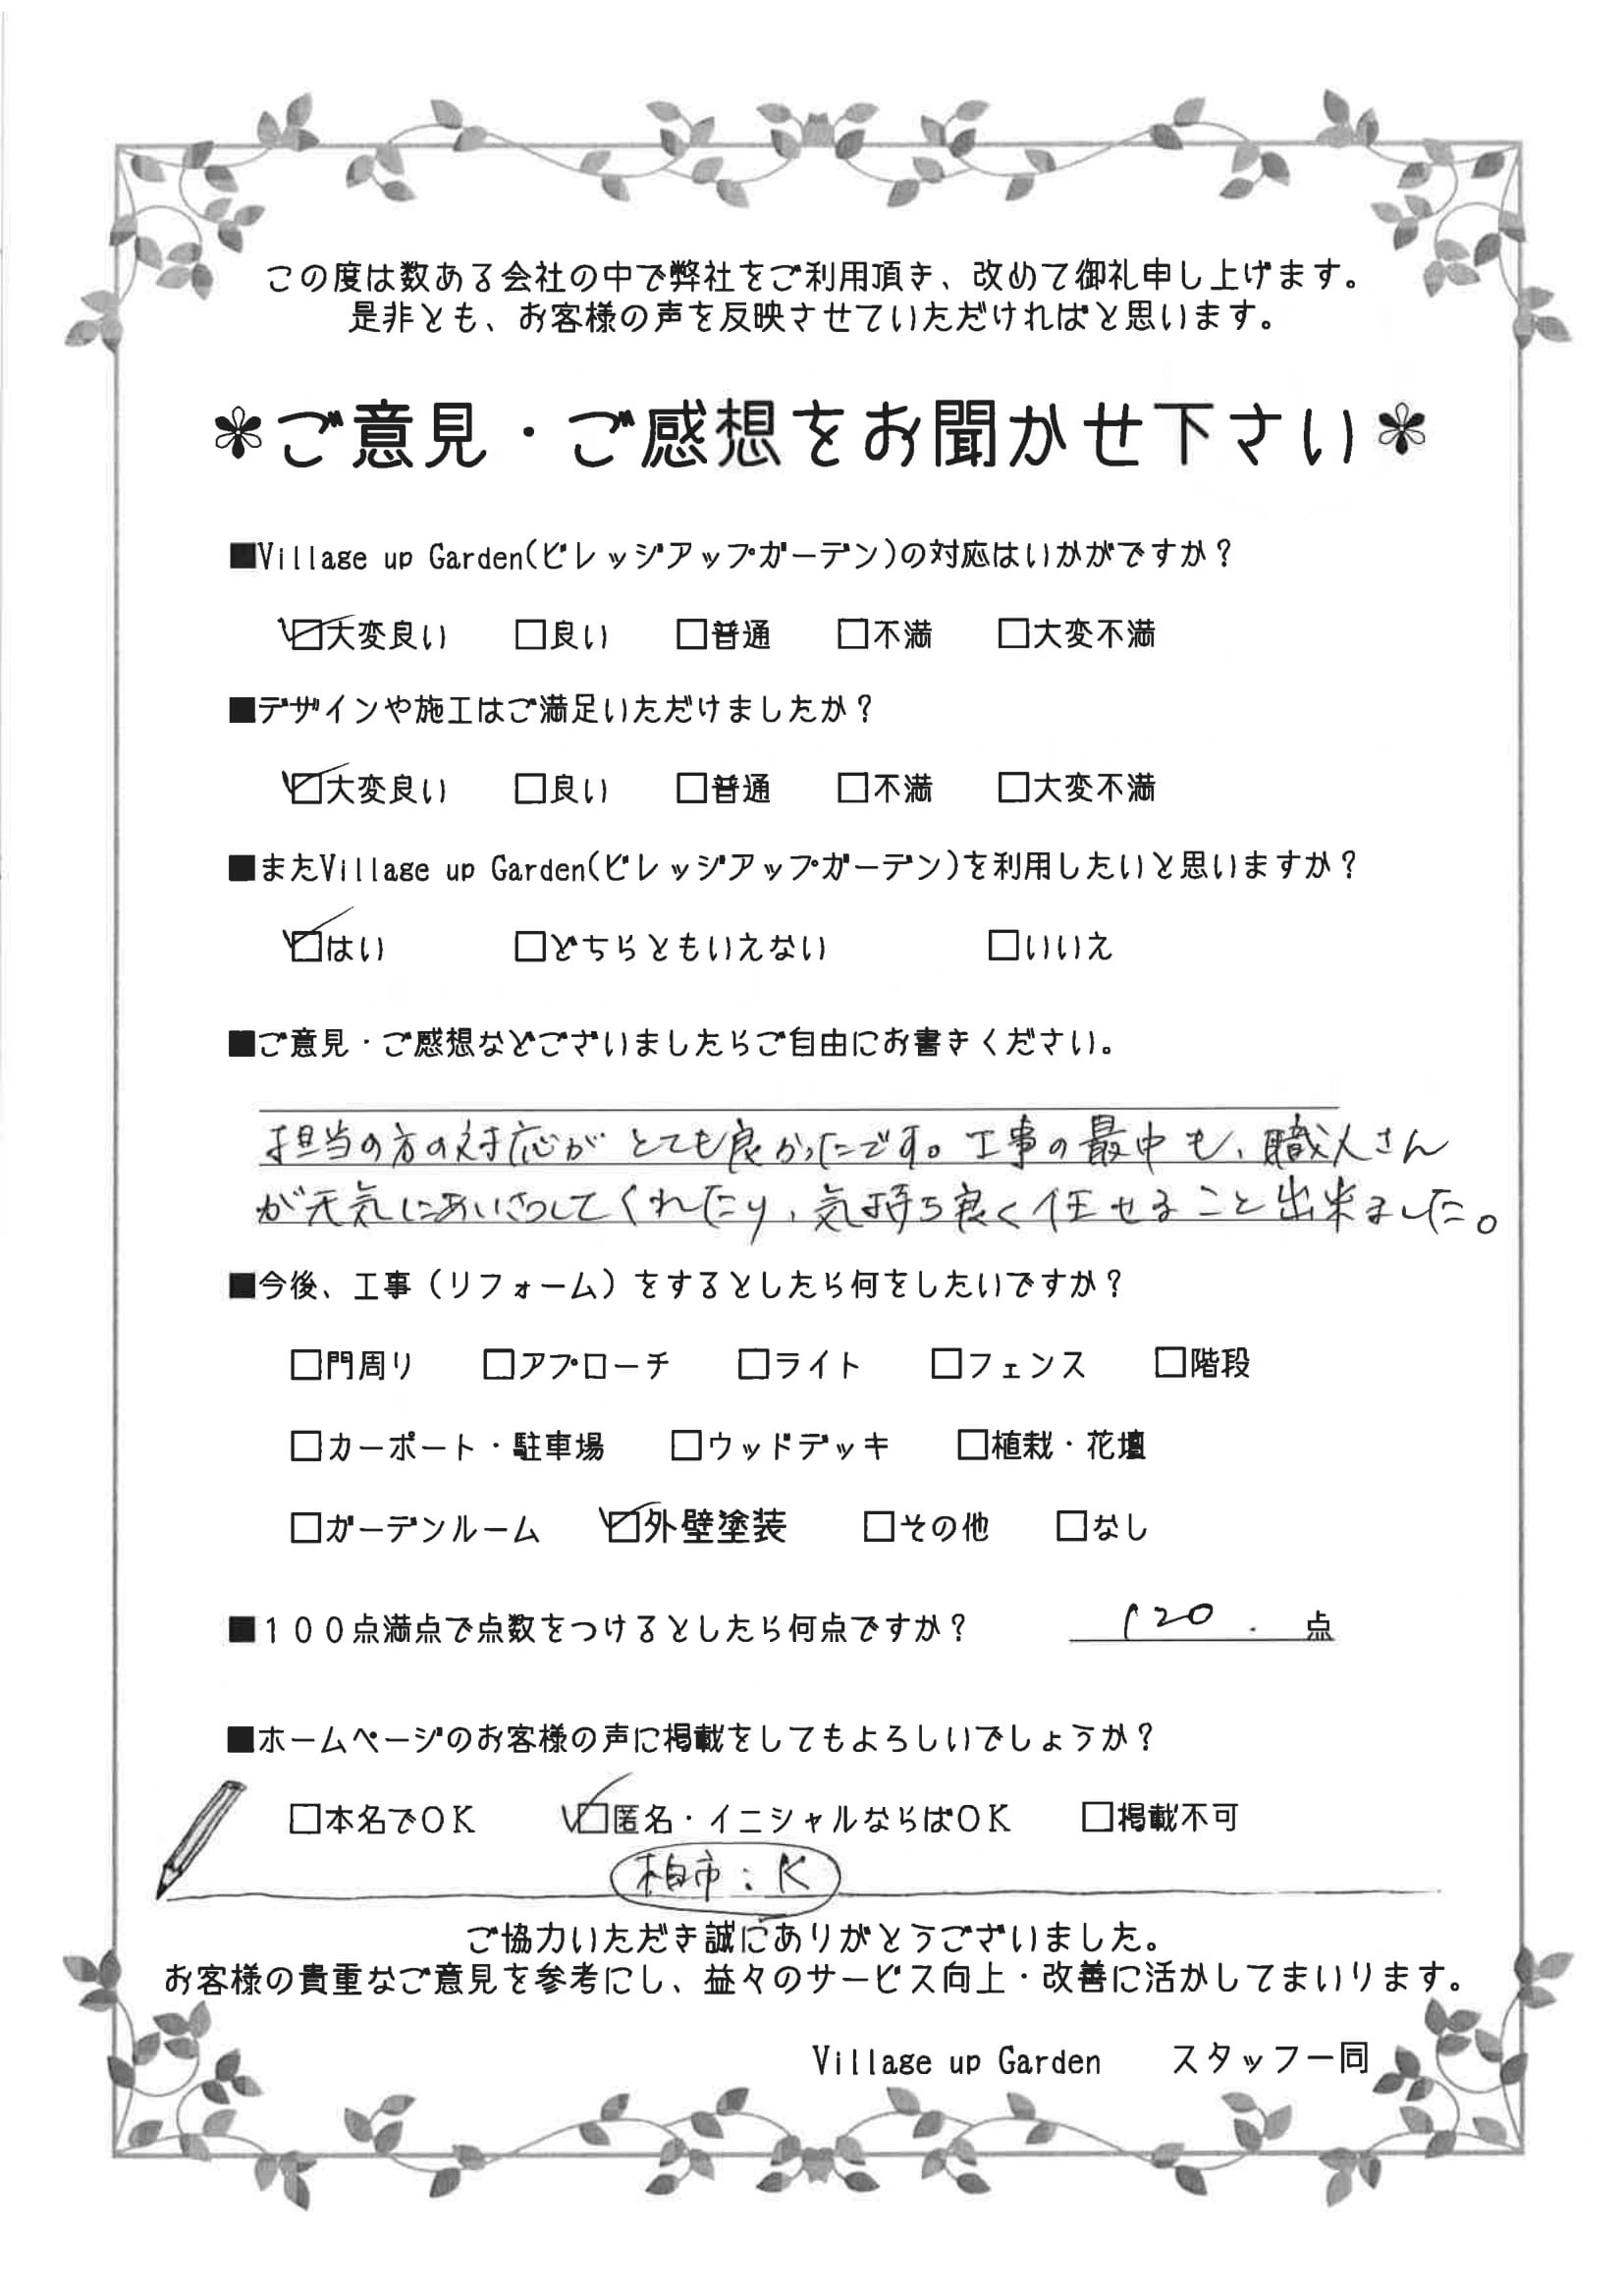 この度は数ある会社の中で弊社をご利用頂き、改めて御礼申し上げます。
是非とも、お客様の声を反映させていただければと思います。
✽ご意見・ご感想をお聞かせ下さい✽
■Village up Garden(ビレッジアップガーデン)の対応はいかがですか？
☑大変良い □良い □普通 □不満 □大変不満
■デザインや施工はご満足いただけましたか？
☑大変良い □良い □普通 □不満 □大変不満
■またVillage up Garden(ビレッジアップガーデン)を利用したいと思いますか？
☑はい □どちらともいえない □いいえ
■ご意見・ご感想などございましたらご自由にお書きください。
担当の方の対応がとても良かったです。工事の最中も、職人さん
が元気にあいさつしてくれたり、気持ち良く任せること出来ました。
■今後、工事（リフォーム）をするとしたら何をしたいですか？
□門周り □アプローチ □ライト □フェンス □階段
□カーポート・駐車場 □ウッドデッキ □植栽・花壇
□ガーデンルーム ☑外壁塗装 □その他 □なし
■１００点満点で点数をつけるとしたら何点ですか？ 120. 点
■ホームページのお客様の声に掲載をしてもよろしいでしょうか？
□本名でＯＫ ☑匿名・イニシャルならばＯＫ □掲載不可
柏市：K
ご協力いただき誠にありがとうございました。
お客様の貴重なご意見を参考にし、益々のサービス向上・改善に活かしてまいります。
Village up Garden スタッフ一同